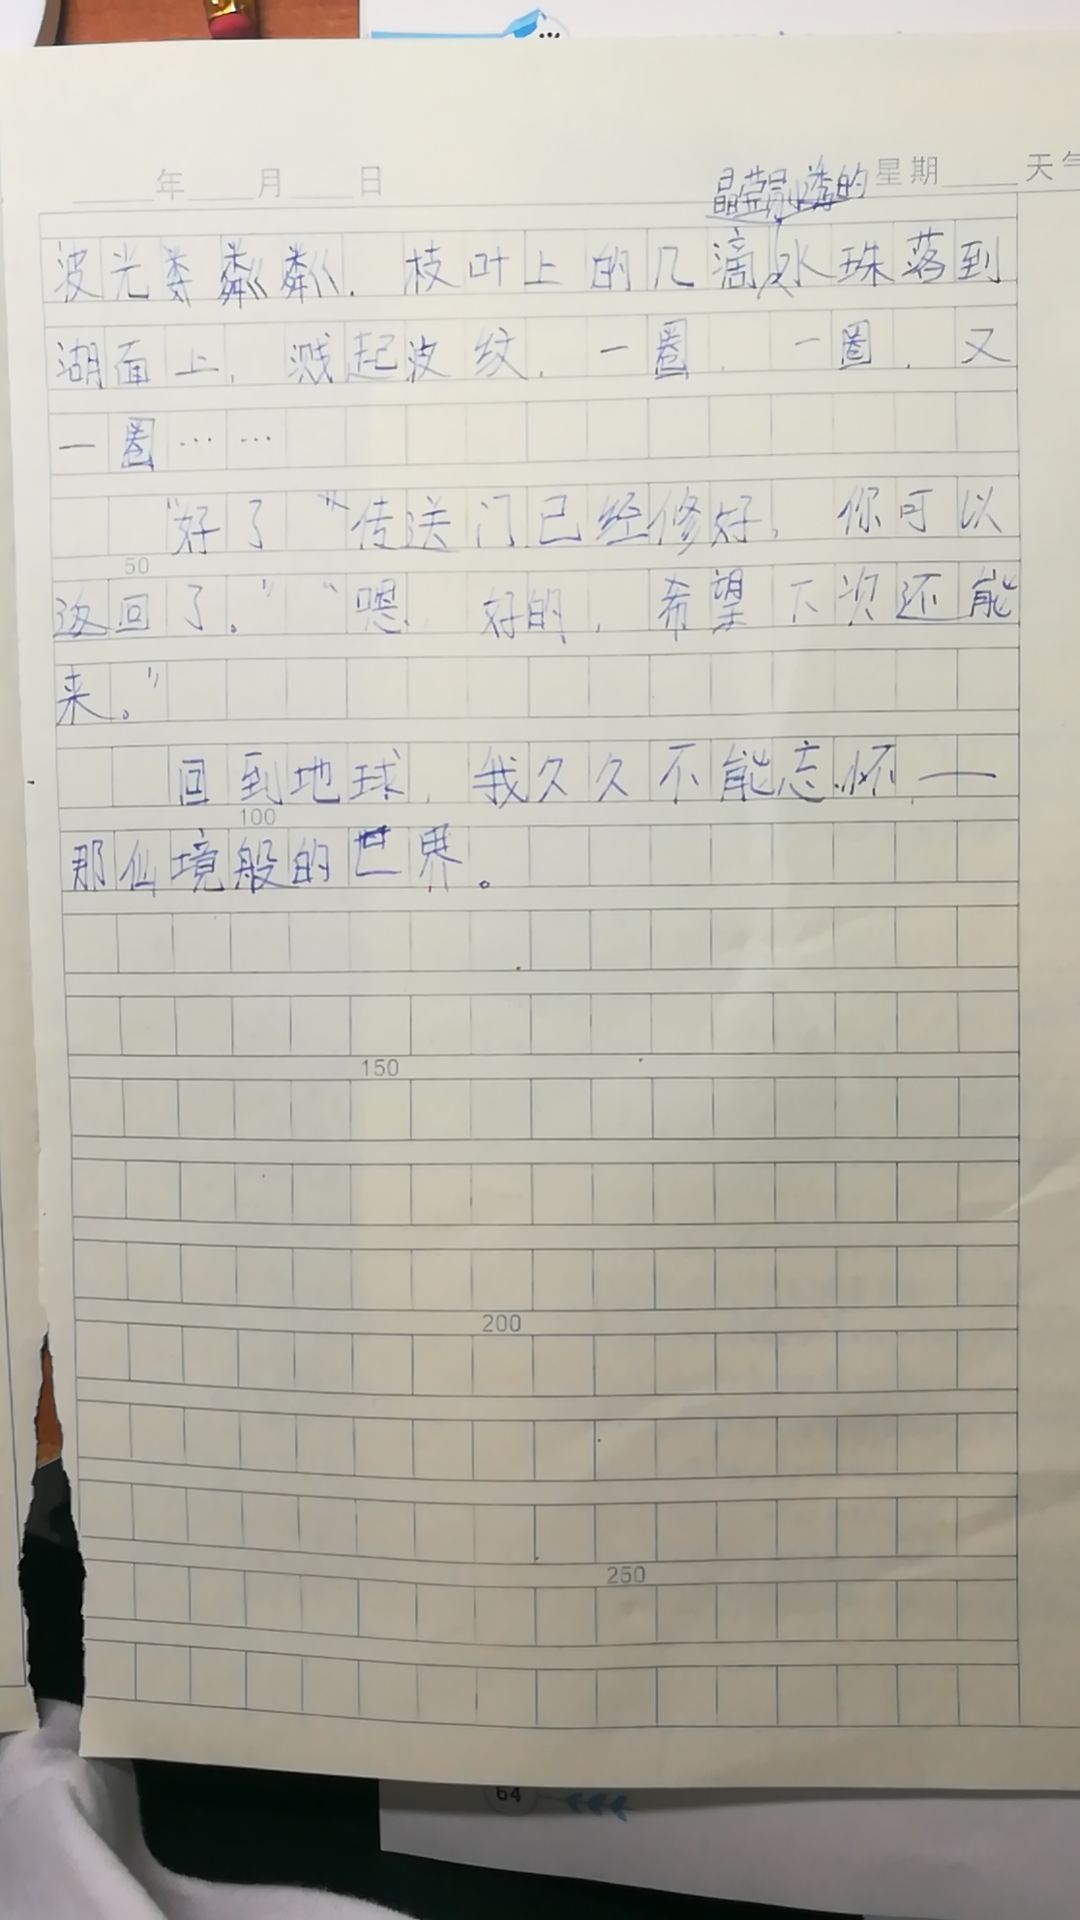 年 月 日 星期 天气
晶莹剔透的
波光粼粼，枝叶上的几滴水珠落到
湖面上，溅起波纹，一圈，一圈，又
一圈……
“好了“传送门已经修好，你可以
50
返回了。”“嗯，好的，希望下次还能
来。”
回到地球，我久久不能忘怀——
100
那仙境般的世界。
150
200
250
64